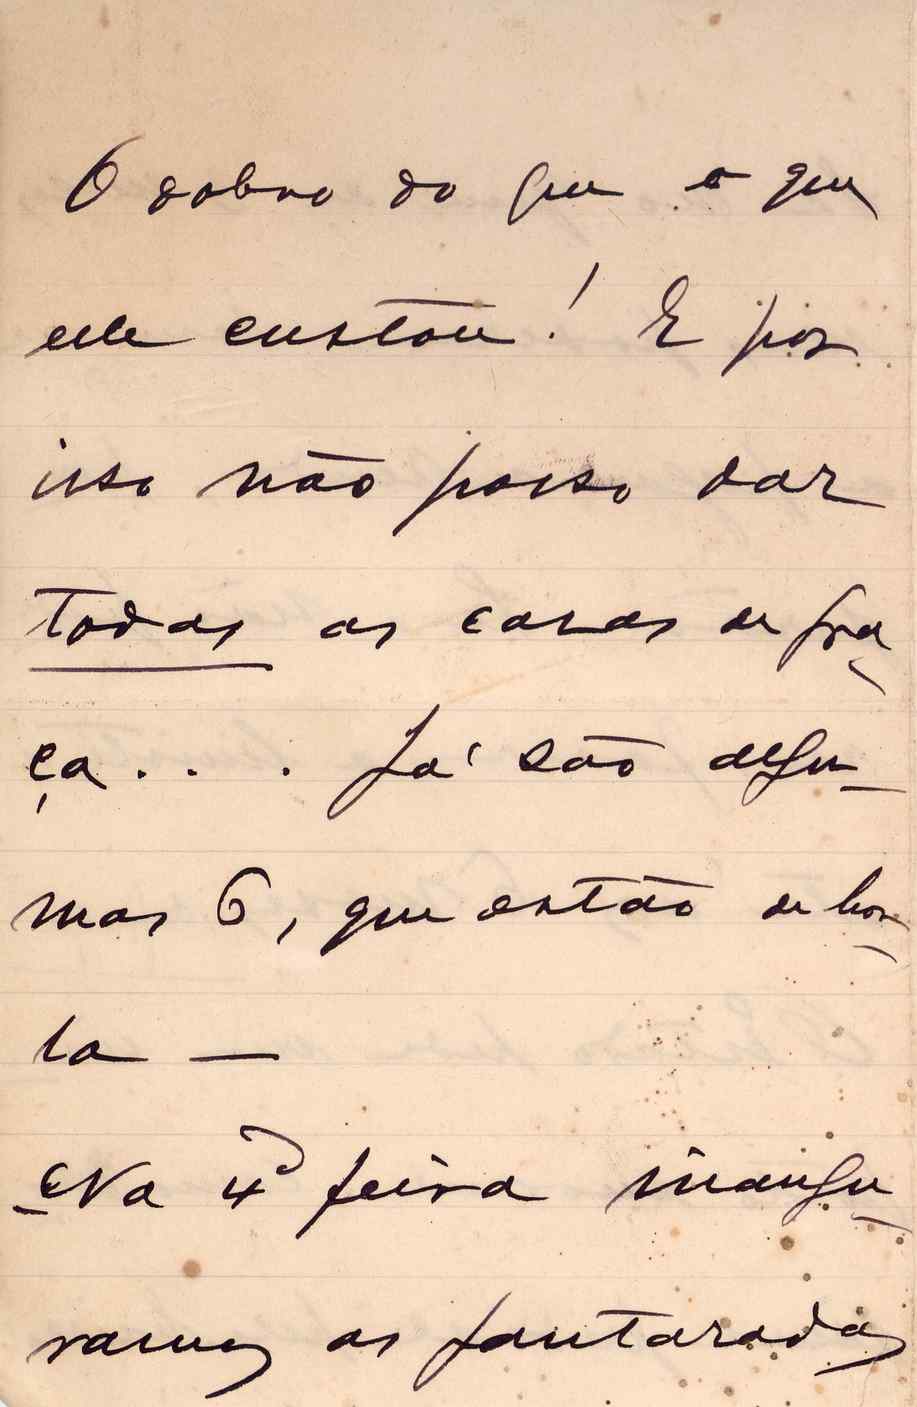 O dobro do que o que
elle custou! E por
isso não posso dar
todas as casas de gra-
ça... Já são algu-
mas 6, que estão de bor-
la —
Na 4ª feira inaugu-
ramos as jantaradas